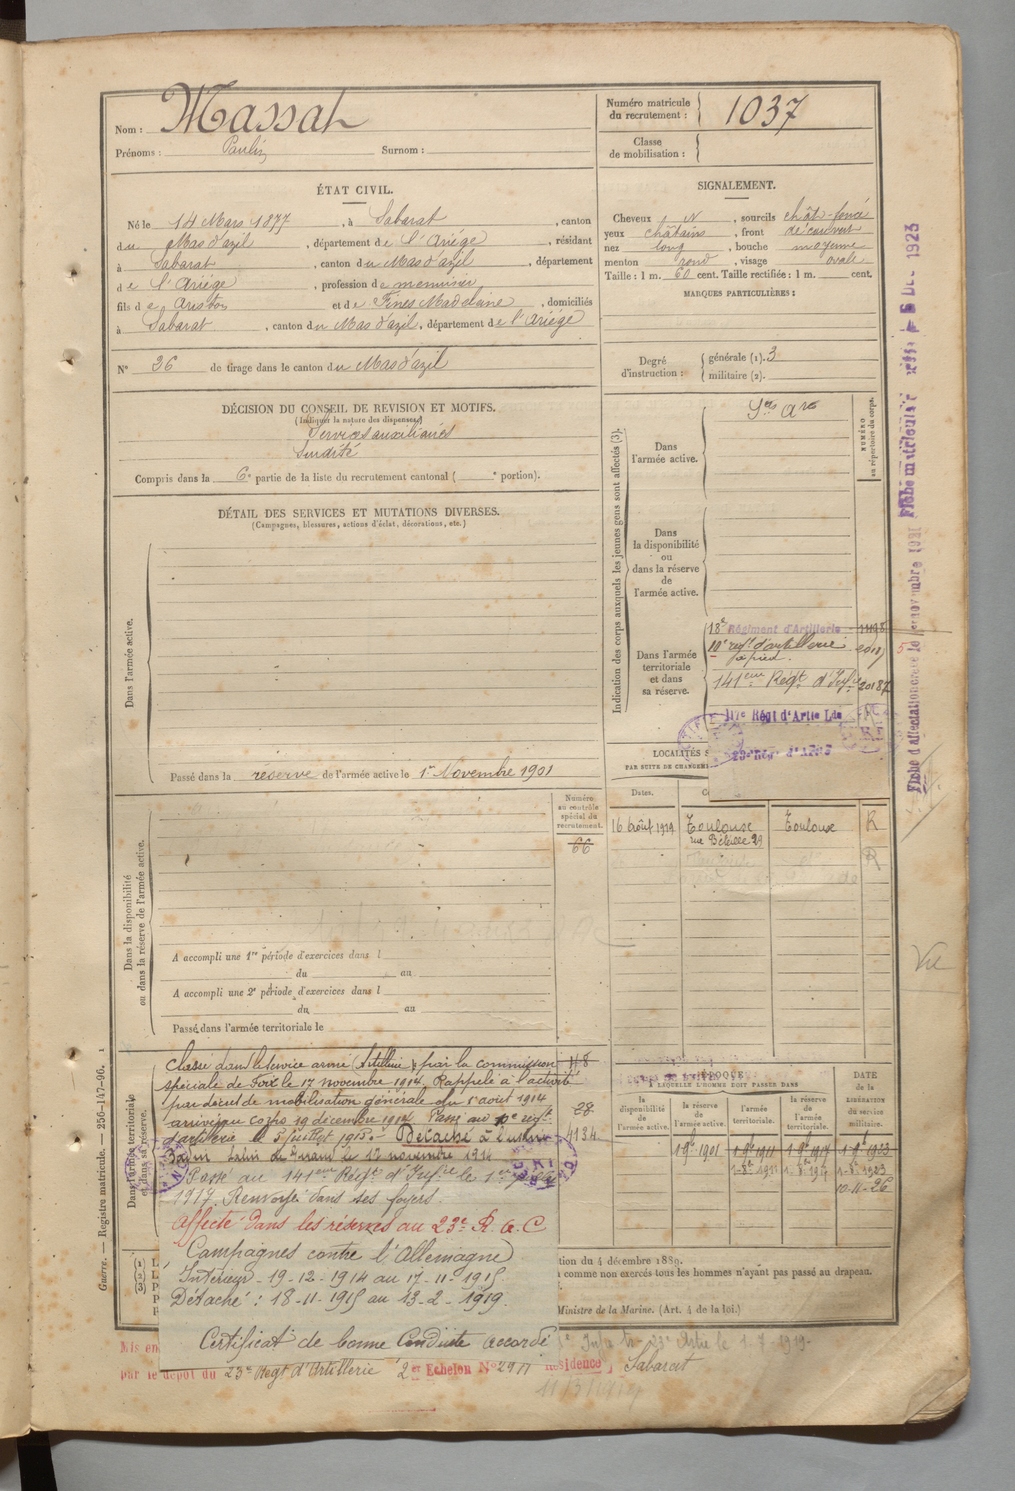 Nom : Massat
Prénoms : Paulin Surnom :
Numéro matricule du recrutement : 1037
Classe de mobilisation :
ÉTAT CIVIL.
Né le 14 Mars 1877, à Sabarat, canton
du Mas d'azil, département de l'Ariége, résidant
à Sabarat, canton du Mas d'azil, département
de l'Ariége, profession de menuisier
fils de Aristos et de Fines Madelaine, domiciliés
à Sabarat, canton du Mas d'azil, département de l'Ariége
N° 26 de tirage dans le canton du Mas d'azil
SIGNALEMENT.
Cheveux N, sourcils chât-foncé
yeux châtains, front découvert
nez long, bouche moyenne
menton rond, visage ovale
Taille : 1 m. 60 cent. Taille rectifiée : 1 m. cent.
MARQUES PARTICULIÈRES :
Degré d'instruction : générale (1). 3
militaire (2).
DÉCISION DU CONSEIL DE REVISION ET MOTIFS.
(Indiquer la nature des dispenses)
Services auxiliaires
Surdité
Compris dans la 6e partie de la liste du recrutement cantonal ( e portion).
DÉTAIL DES SERVICES ET MUTATIONS DIVERSES.
(Campagnes, blessures, actions d'éclat, décorations, etc.)
Dans l'armée active.
Passé dans la réserve de l'armée active le 1er Novembre 1901
Indication des corps auxquels les jeunes gens sont affectés (3).
NUMÉRO au répertoire du corps.
Dans l'armée active.
Ses Ares
Dans la disponibilité ou dans la réserve de l'armée active.
Dans l'armée territoriale et dans sa réserve.
18e Régiment d'Artillerie
10e regt d'artillerie à pied.
141eme Régt d'Infie 20187
117e Régt d'Artie Lde
23e Régt d'Artie
LOCALITÉS S
PAR SUITE DE CHANGEM
Dates.
16 Août 1929 Toulouse Toulouse R
R
Numéro au contrôle spécial du recrutement.
66
Dans la disponibilité ou dans la réserve de l'armée active.
A accompli une 1re période d'exercices dans l
du au
A accompli une 2e période d'exercices dans l
du au
Passé dans l'armée territoriale le
Dans l'armée territoriale et dans sa réserve.
Classé dans le service armé (Artillerie) par la commission
spéciale de Foix le 17 novembre 1914. Rappelé à l'activité
par décret de mobilisation générale du 1er août 1914
arrivé au corps 19 décembre 1914 Passé au 10e regt
d'artillerie le 5 juillet 1915. Détaché à l'usine
Passé au 141eme Régt d'Infie le 1er
1917. Renvoyé dans ses foyers.
Affecté dans les réserves au 23e R.A.C
Campagnes contre l'Allemagne
Intérieur - 19-12-1914 au 17-11-1915
Détaché : 18-11-1915 au 13-2-1919.
Certificat de bonne Conduite accordé
28
4134
ÉPOQUE
À LAQUELLE L'HOMME DOIT PASSER DANS
la disponibilité de l'armée active.
la réserve de l'armée active.
l'armée territoriale.
la réserve de l'armée territoriale.
DATE de la LIBÉRATION du service militaire.
1-9bre 1901 1-9bre 1911 1-9bre 1917 1-9bre 1923
10-11-26
tion du 4 décembre 1889.
à comme non exercés tous les hommes n'ayant pas passé au drapeau.
Ministre de la Marine. (Art. 4 de la loi.)
23e Artie le 1-7-1919-
Mis en
par le dépôt du 23e Régt d'Artillerie 2er Echelon N° 2911 Résidence Sabarat
Guerre. — Registre matricule. — 256-147-96.